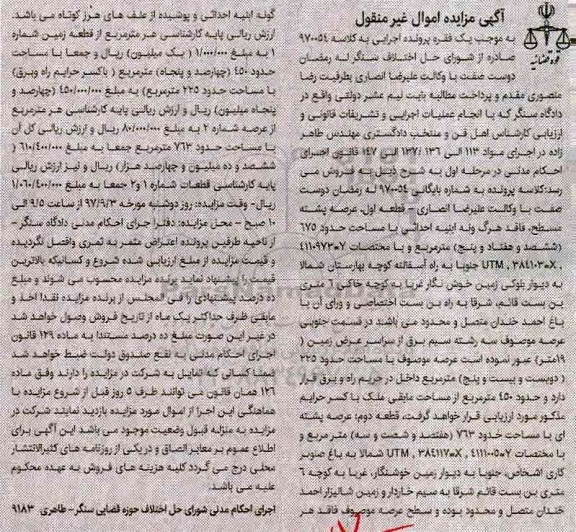 آگهی مزایده اموال غیر منقول
به موجب یک فقره پرونده اجرایی به کلاسه ۹۷۰۰۵۴
صادره از شورای حل اختلاف سنگر له رمضان
دوست صفت با وکالت علیرضا انصاری بطرفیت رضا
منصوری مقدم و پرداخت مطالبه بابت نیم عشر دولتی واقع در
دادگاه سنگر که با انجام عملیات اجرایی و تشریفات قانونی و
ارزیابی کارشناس اهل فن و منتخب دادگستری مهندس طاهر
زاده در اجرای مواد ۱۱۳ الی ۱۳۶ /۱۳۷ الی ۱۴۷ قانون اجرای
احکام مدنی در مرحله اول به شرح ذیل به فروش می
رسد:کلاسه پرونده به شماره بایگانی ۹۷۰۰۵۴ له رمضان دوست
صفت با وکالت علیرضا انصاری- قطعه اول، عرصه پشته
مسطح، فاقد هرگونه ابنیه احداثی با مساحت حدود ۶۷۵
(ششصد و هفتاد و پنج) مترمربع و با مختصات ۴۱۱۰۹۷۳۰۷
, UTM , ۳۸۴۱۰۳۰X جنوبا به راه آسفالته کوچه بهارستان شمالا
به دیوار بلوکی زمین خوش نگار غربا به کوچه خاکی ۶ متری
بن بست قائم، شرقا به راه بن بست اختصاصی و ورای آن با
باغ احمد خندان متصل و محدود می باشد در قسمت جنوبی
عرصه موصوف سه رشته سیم برق از سراسر عرض زمین (
۱۹متر) عبور نموده است عرصه موصوف با مساحت حدود ۲۲۵
( دویست و بیست و پنج) مترمربع داخل در حریم راه و برق قرار
دارد و حدود ۴۵۰ مترمربع از مساحت مابقی ملک با کسر حرایم
مذکور مورد ارزیابی قرار خواهد گرفت، قطعه دوم: عرصه پشته
ای با مساحت حدود ۷۶۳ (هفتصد و شصت و سه) متر مربع و
با مختصات ۴۱۱۱۰۰۵۰۷ , UTM , ۳۸۴۱۱۷۰X شمالا به باغ صنوبر
کاری اشخاص، جنوبا به دیوار زمین خوشنگار، غربا به کوچه ۶
متری بن بست قائم شرقا به سیم خاردار و زمین شالیزار احمد
خندان متصل و محدود بوده و سطح عرصه موصوف فاقد هر
گونه ابنیه احداثی و پوشیده از علف های هرز کوتاه می باشد.
ارزش ریالی پایه کارشناسی هر مترمربع از قطعه زمین شماره
۱ به مبلغ ۱/۰۰۰/۰۰۰ ( یک میلیون) ریال و جمعا با مساحت
حدود ۴۵۰ (چهارصد و پنجاه) مترمربع ( باکسر حرایم راه وبرق)
با مساحت حدود ۲۲۵ مترمربع) به مبلغ ۴۵۰/۰۰۰/۰۰۰ (چهارصد و
پنجاه میلیون) ریال و ارزش ریالی پایه کارشناسی هر مترمربع
از عرصه شماره ۲ به مبلغ ۸۰۰/۰۰۰ ریال و ارزش ریالی کل آن
با مساحت حدود ۷۶۳ مترمربع جمعا به مبلغ ۶۱۰/۴۰۰/۰۰۰ (
ششصد و ده میلیون و چهارصد هزار) ریال و نیز ارزش ریالی
پایه کارشناسی قطعات شماره ۱ و۲ جمعا به مبلغ ۱/۰۶۰/۴۰۰/۰۰۰
ریال- وقت مزایده: روز دوشنبه مورخه ۹۷/۹/۳ از ساعت ۹/۵ الی
۱۰ صبح - محل مزایده: دفتر اجرای احکام مدنی دادگاه سنگر -
از ناحیه طرفین پرونده اعتراض مثمر به ثمری واصل نگردیده
و قیمت مزایده از مبلغ ارزیابی شده شروع و کسانیکه بالاترین
قیمت را پیشنهاد نماید برنده مزایده محسوب می شوند و مبلغ
ده درصد پیشنهادی را فی المجلس از برنده مزایده نقدا اخذ و
مابقی ظرف حداکثر یک ماه از تاریخ فروش وصول خواهد شد
در غیر این صورت مبلغ ده درصد مستندا به ماده ۱۲۹ قانون
اجرای احکام مدنی به نفع صندوق دولت ضبط خواهد شد
ضمنا کسانی که تمایل به شرکت در مزایده را دارند وفق ماده
۱۲۶ همان قانون می توانند ظرف ۵ روز قبل از شروع مزایده با
هماهنگی این اجرا از اموال مورد مزایده بازدید نمایند شرکت در
مزایده به منزله قبول وضعیت موجود می باشد این آگهی برای
اطلاع عموم بر معابر الصاق و دریکی از روزنامه های کثیرالانتشار
محلی درج می گردد کلیه هزینه های فروش به عهده محکوم
علیه می باشد.
اجرای احکام مدنی شورای حل اختلاف حوزه قضایی سنگر- طاهری ۹۱۸۳